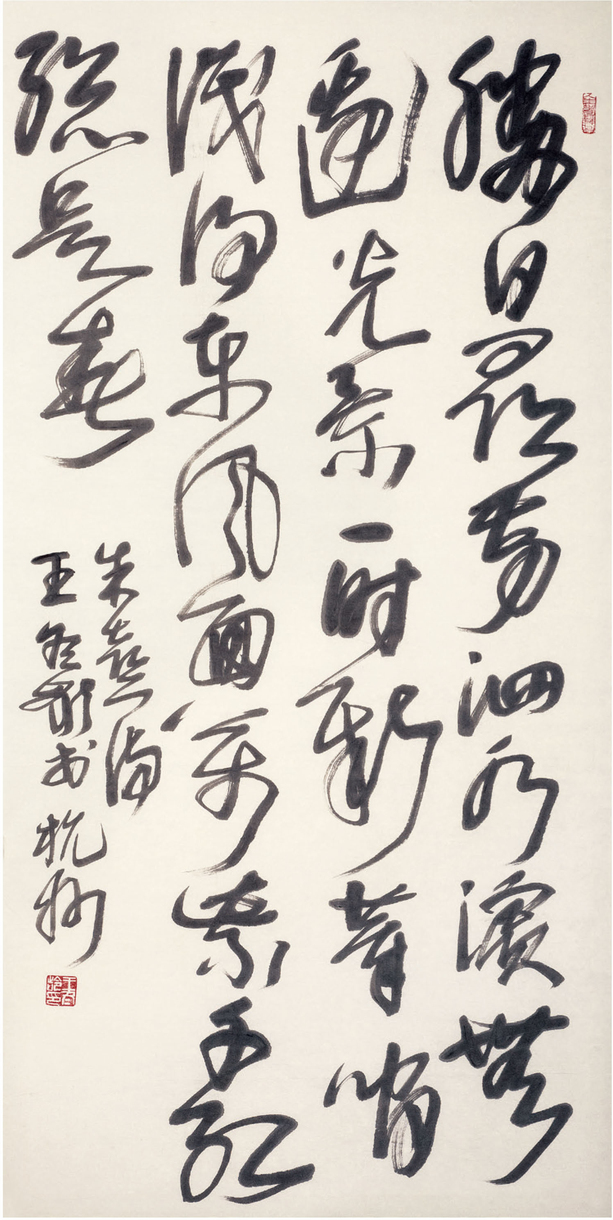 勝日尋芳泗水濱無
邊光景一時新等閒
識得東風面萬紫千紅
總是春
朱熹詩
王冬齡書杭州